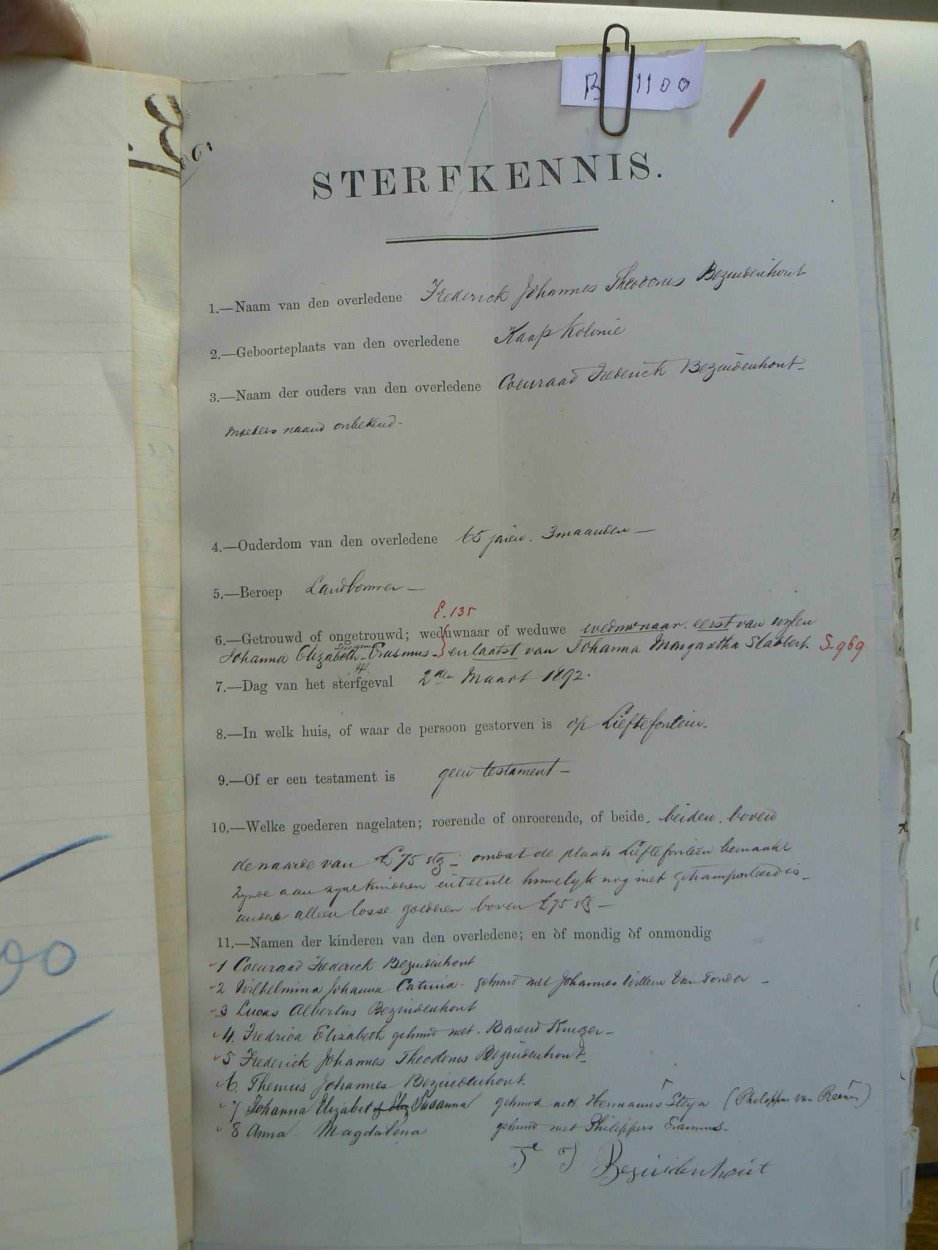 B 1100
STERFKENNIS.
1.—Naam van den overledene Frederick Johannes Theodorus Bezuidenhout
2.—Geboorteplaats van den overledene Kaap Kolonie
3.—Naam der ouders van den overledene Coenraad Frederick Bezuidenhout
moeders naam onbekend.
4.—Ouderdom van den overledene 65 jaren. 3 maanden —
5.—Beroep Landbouwer —
E.135
6.—Getrouwd of ongetrouwd; weduwnaar of weduwe weduwnaar. eerst van wylen
Johanna Elizabeth Erasmus - en laatst van Johanna Margaretha Slabbert. S.969
7.—Dag van het sterfgeval 2den Maart 1892.
8.—In welk huis, of waar de persoon gestorven is op Lieftefontein.
9.—Of er een testament is geen testament —
10.—Welke goederen nagelaten; roerende of onroerende, of beide. beiden. boven
de waarde van £75 stg — omdat de plaats Lieftefontein
aan zyne kinderen uit eerste huwelyk nog niet is
anders alleen losse goederen boven £75 stg —
11.—Namen der kinderen van den overledene; en òf mondig òf onmondig
1 Coenraad Frederick Bezuidenhout
2 Wilhelmina Johanna Catrina. gehuwd met Johannes Willem Van Tonder —
3 Lucas Albertus Bezuidenhout
4. Fredrica Elizabeth gehuwd met. Barend Kruger —
5 Frederick Johannes Theodorus Bezuidenhout
6 Theunis Johannes Bezuidenhout
7 Johanna Elizabet Susanna gehuwd met Hermanus Steyn (Philippus van )
8 Anna Magdalena gehuwd met Philippus Erasmus —
F J Bezuidenhout
00